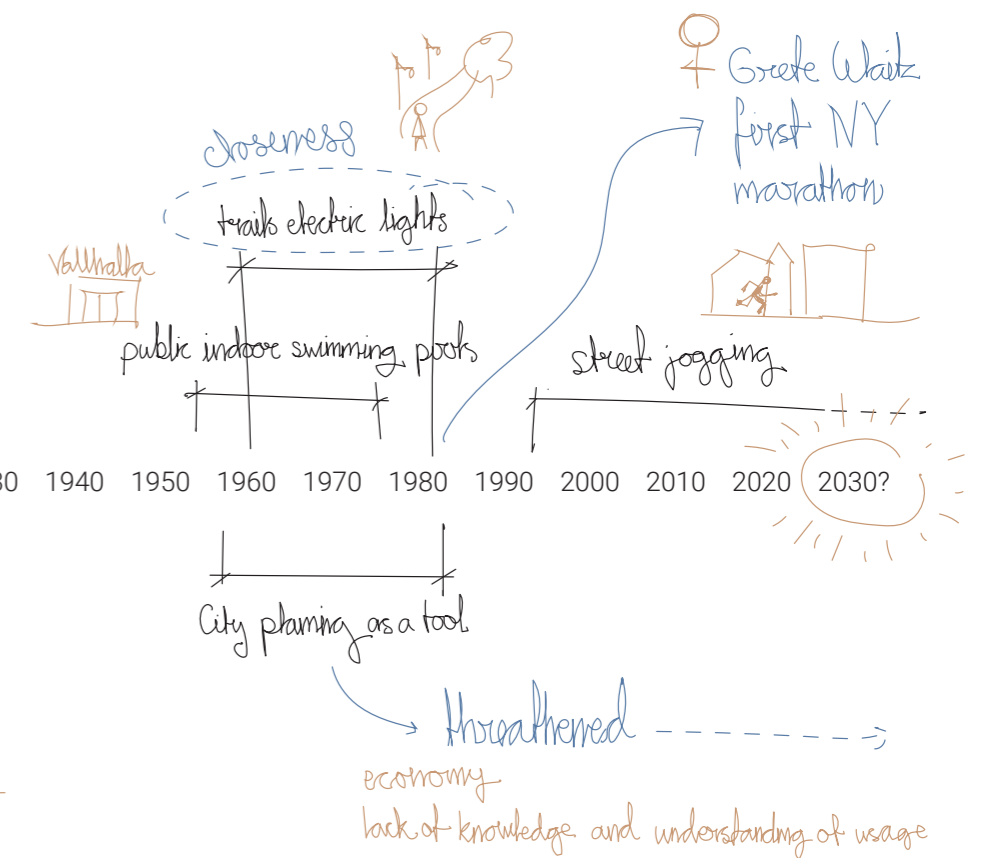 Grete Waitz
first NY
marathon
closeness
trails electric lights
Vallhalla
public indoor swimming pools
street jogging
30 1940 1950 1960 1970 1980 1990 2000 2010 2020 2030?
City planning as a tool
threathened
economy
lack of knowledge and understanding of usage